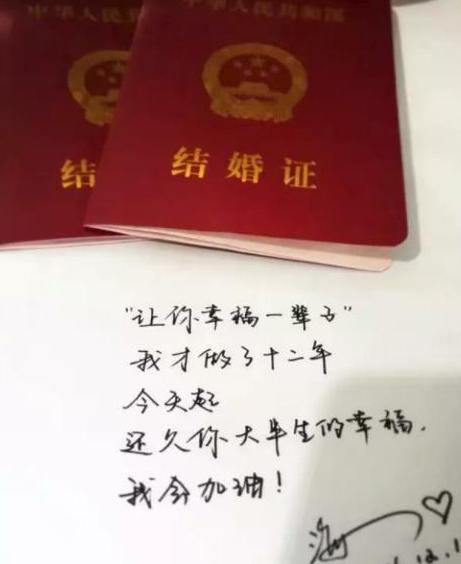 中华人民共
结
中华人民共和国
结婚证
"让你幸福一辈子"
我才做了十二年
今天起
还欠你大半生的幸福.
我会加油!